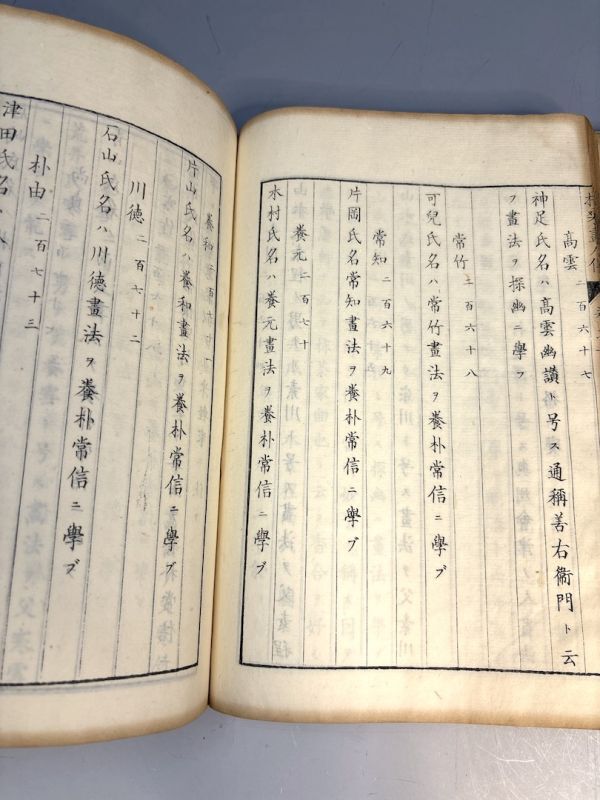 高雲 二百六十七
神足氏名ハ高雲幽讃ト号ス通稱善右衞門ト云
フ畫法ヲ探幽ニ學フ
常竹 二百六十八
可兒氏名ハ常竹畫法ヲ養朴常信ニ學ブ
常知 二百六十九
片岡氏名常知畫法ヲ養朴常信ニ學ブ
養元 二百七十
木村氏名ハ養元畫法ヲ養朴常信ニ學ブ
養和 二百七十一
片山氏名ハ養和畫法ヲ養朴常信ニ學ブ
川德 二百七十二
石山氏名ハ川德畫法ヲ養朴常信ニ學ブ
朴由 二百七十三
津田氏名ハ